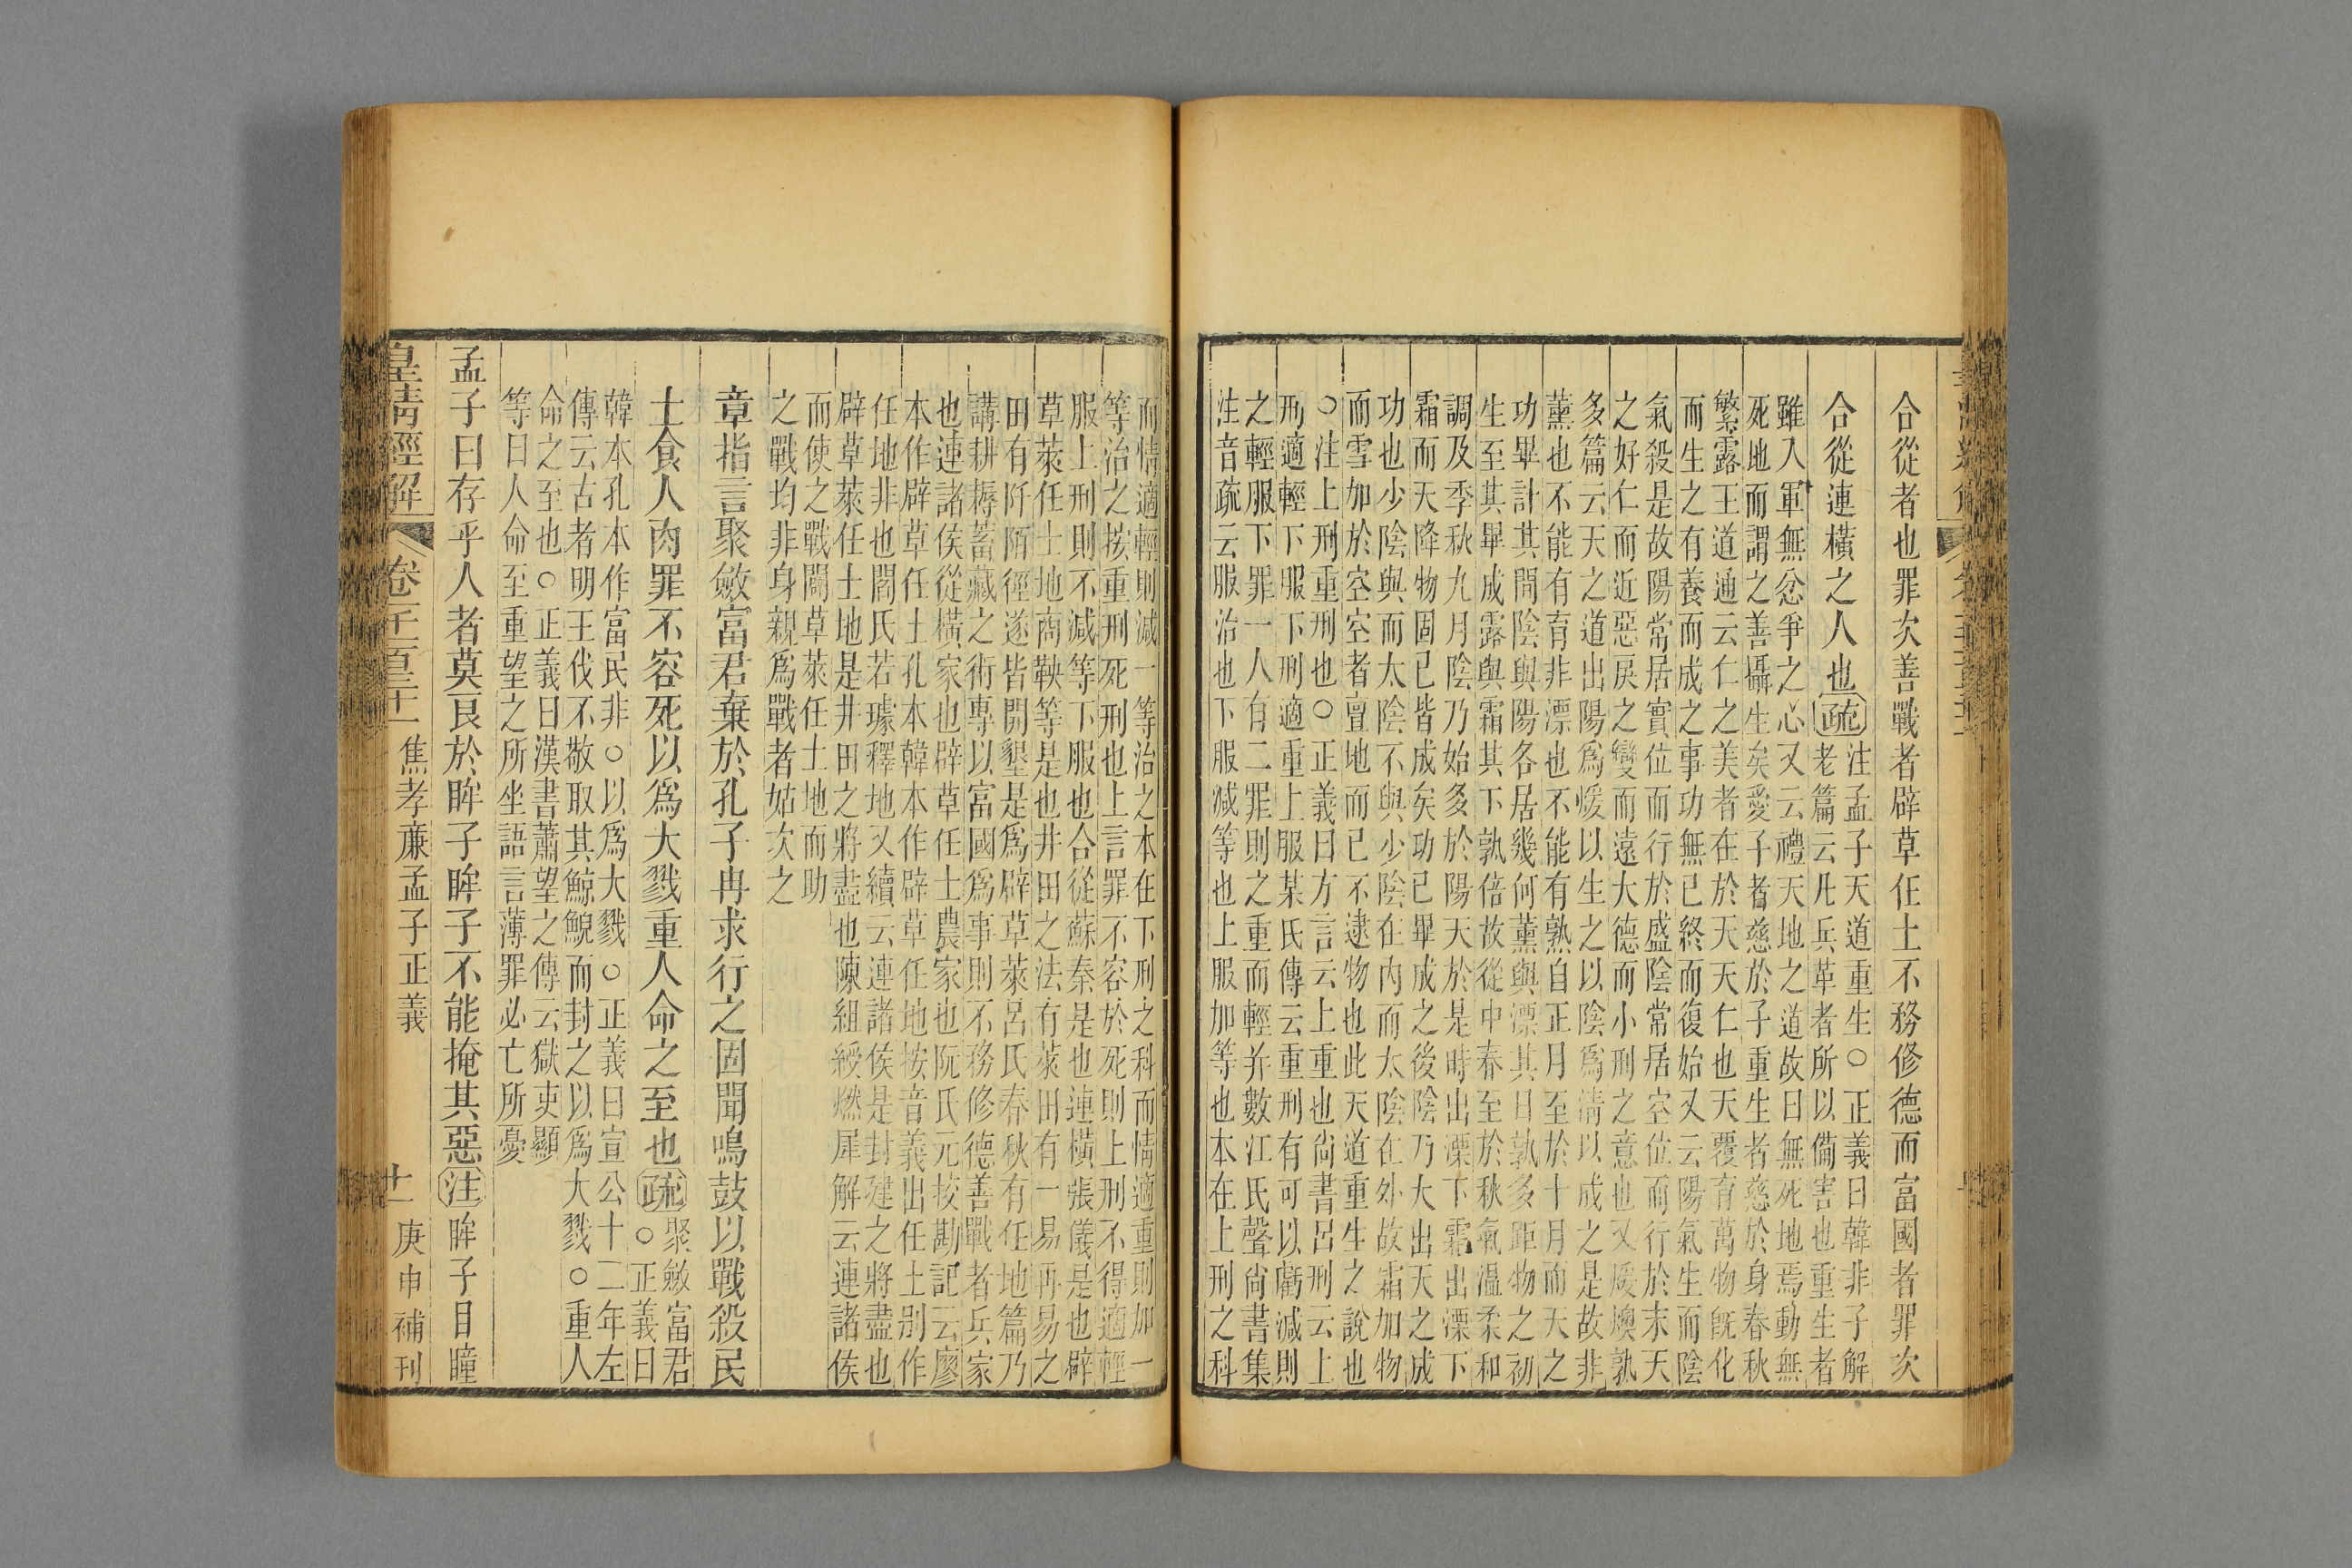 合從者也罪次善戰者辟草任土不務修德而富國者罪次
合從連橫之人也疏
注孟子天道重生○正義曰韓非子解
老篇云凡兵革者所以備害也重生者
雖入軍無忿爭之心又云禮天地之道故曰無死地焉動無
死地而謂之善攝生矣愛子者慈於子重生者慈於身春秋
繁露王道通云仁之美者在於天天仁也天覆育萬物既化
而生之有養而成之事功無已終而復始又云陽氣生而陰
氣殺是故陽常居實位而行於盛陰常居空位而行於末天
之好仁而近惡戾之變而遠大德而小刑之意也又煖燠孰
多篇云天之道出陽爲煖以生之以陰爲淸以成之是故非
薰也不能有育非漂也不能有熟自正月至於十月而天之
功畢計其間陰與陽各居幾何薰與漂其日孰多距物之初
生至其畢成露與霜其下孰倍故從中春至於秋氣溫柔和
調及季秋九月陰乃始多於陽天於是時出溧下霜出溧下
霜而天降物固已皆成矣功已畢成之後陰乃大出天之成
功也少陰與而太陰不與少陰在內而太陰在外故霜加物
而雪加於空空者亶地而已不逮物也此天道重生之說也
○注上刑重刑也○正義曰方言云上重也尚書呂刑云上
刑適輕下服下刑適重上服某氏傳云重刑有可以虧減則
之輕服下罪一人有二罪則之重而輕并數江氏聲尚書集
注音疏云服治也下服減等也上服加等也本在上刑之科
而情適輕則減一等治之本在下刑之科而情適重則加一
等治之按重刑死刑也上言罪不容於死則上刑不得適輕
服上刑則不減等下服也合從蘇秦是也連橫張儀是也辟
草萊任土地商鞅等是也井田之法有萊田有一易再易之
田有阡陌徑遂皆開墾是爲辟草萊呂氏春秋有任地篇乃
講耕耨蓄藏之術專以富國爲事則不務修德善戰者兵家
也連諸侯從橫家也辟草任土農家也阮氏元挍勘記云廖
本作辟草任土孔本韓本作辟草任地按音義出任土別作
任地非也閻氏若璩釋地又續云連諸侯是封建之將盡也
辟草萊任土地是井田之將盡也陳組綬燃犀解云連諸侯
而使之戰闢草萊任土地而助
之戰均非身親爲戰者姑次之
章指言聚斂富君棄於孔子冉求行之固聞鳴鼓以戰殺民
土食人肉罪不容死以爲大戮重人命之至也疏
聚斂富君
○正義曰
韓本孔本作富民非○以爲大戮○正義曰宣公十二年左
傳云古者明王伐不敬取其鯨鯢而封之以爲大戮○重人
命之至也○正義曰漢書蕭望之傳云獄吏顯
等曰人命至重望之所坐語言薄罪必亡所憂
孟子曰存乎人者莫良於眸子眸子不能掩其惡注眸子目瞳
皇淸經解 卷 焦孝廉孟子正義 十一 庚申補刊